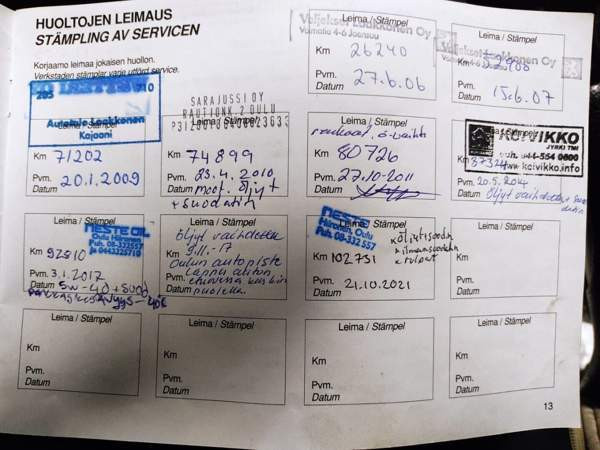 HUOLTOJEN LEIMAUS
STÄMPLING AV SERVICEN
Korjaamo leimaa jokaisen huollon.
Verkstaden stämplar varje utförd service.
Autotalo Laakkonen
Kajaani
Km 71202
Pvm. Datum 20.1.2009
SARAJUSSI OY
RAUTIONK 2 OULU
Leima / Stämpel
Km 74899
Pvm. 23.4.2010
Datum moot. öljyt
+ suodatin
Veljekset Laakkonen Oy
Voimatie 4-6 Joensuu
Leima / Stämpel
Km 26240
Pvm. 27.6.06
Datum
Veljekset Laakkonen Oy
Leima / Stämpel
Km
Pvm.
Datum 15.6.07
Leima / Stämpel
Km 80726
Pvm. 27.10-2011
Datum
KOIVIKKO
JYRKI TMI
Puh. 044-554 0600
www.koivikko.info
Km 87324
Pvm. 20.5.2014
Datum Öljyt vaihdettu
NESTE OIL
Km 92510
Pvm. 3.1.2017
Datum 5W-40 + suod
Leima / Stämpel
Öljyt vaihdettu
9.11.-17
Oulun autopiste
lappu auton
puolella.
Leima / Stämpel
NESTE
Oulu
Puh. 08-332 557
x öljyt/suodin
x ilmansuodatin
x tulpat
Km 102751
Pvm.
Datum 21.10.2021
Leima / Stämpel
Km
Pvm.
Datum
Leima / Stämpel
Km
Pvm.
Datum
Leima / Stämpel
Km
Pvm.
Datum
Leima / Stämpel
Km
Pvm.
Datum
Leima / Stämpel
Km
Pvm.
Datum
13